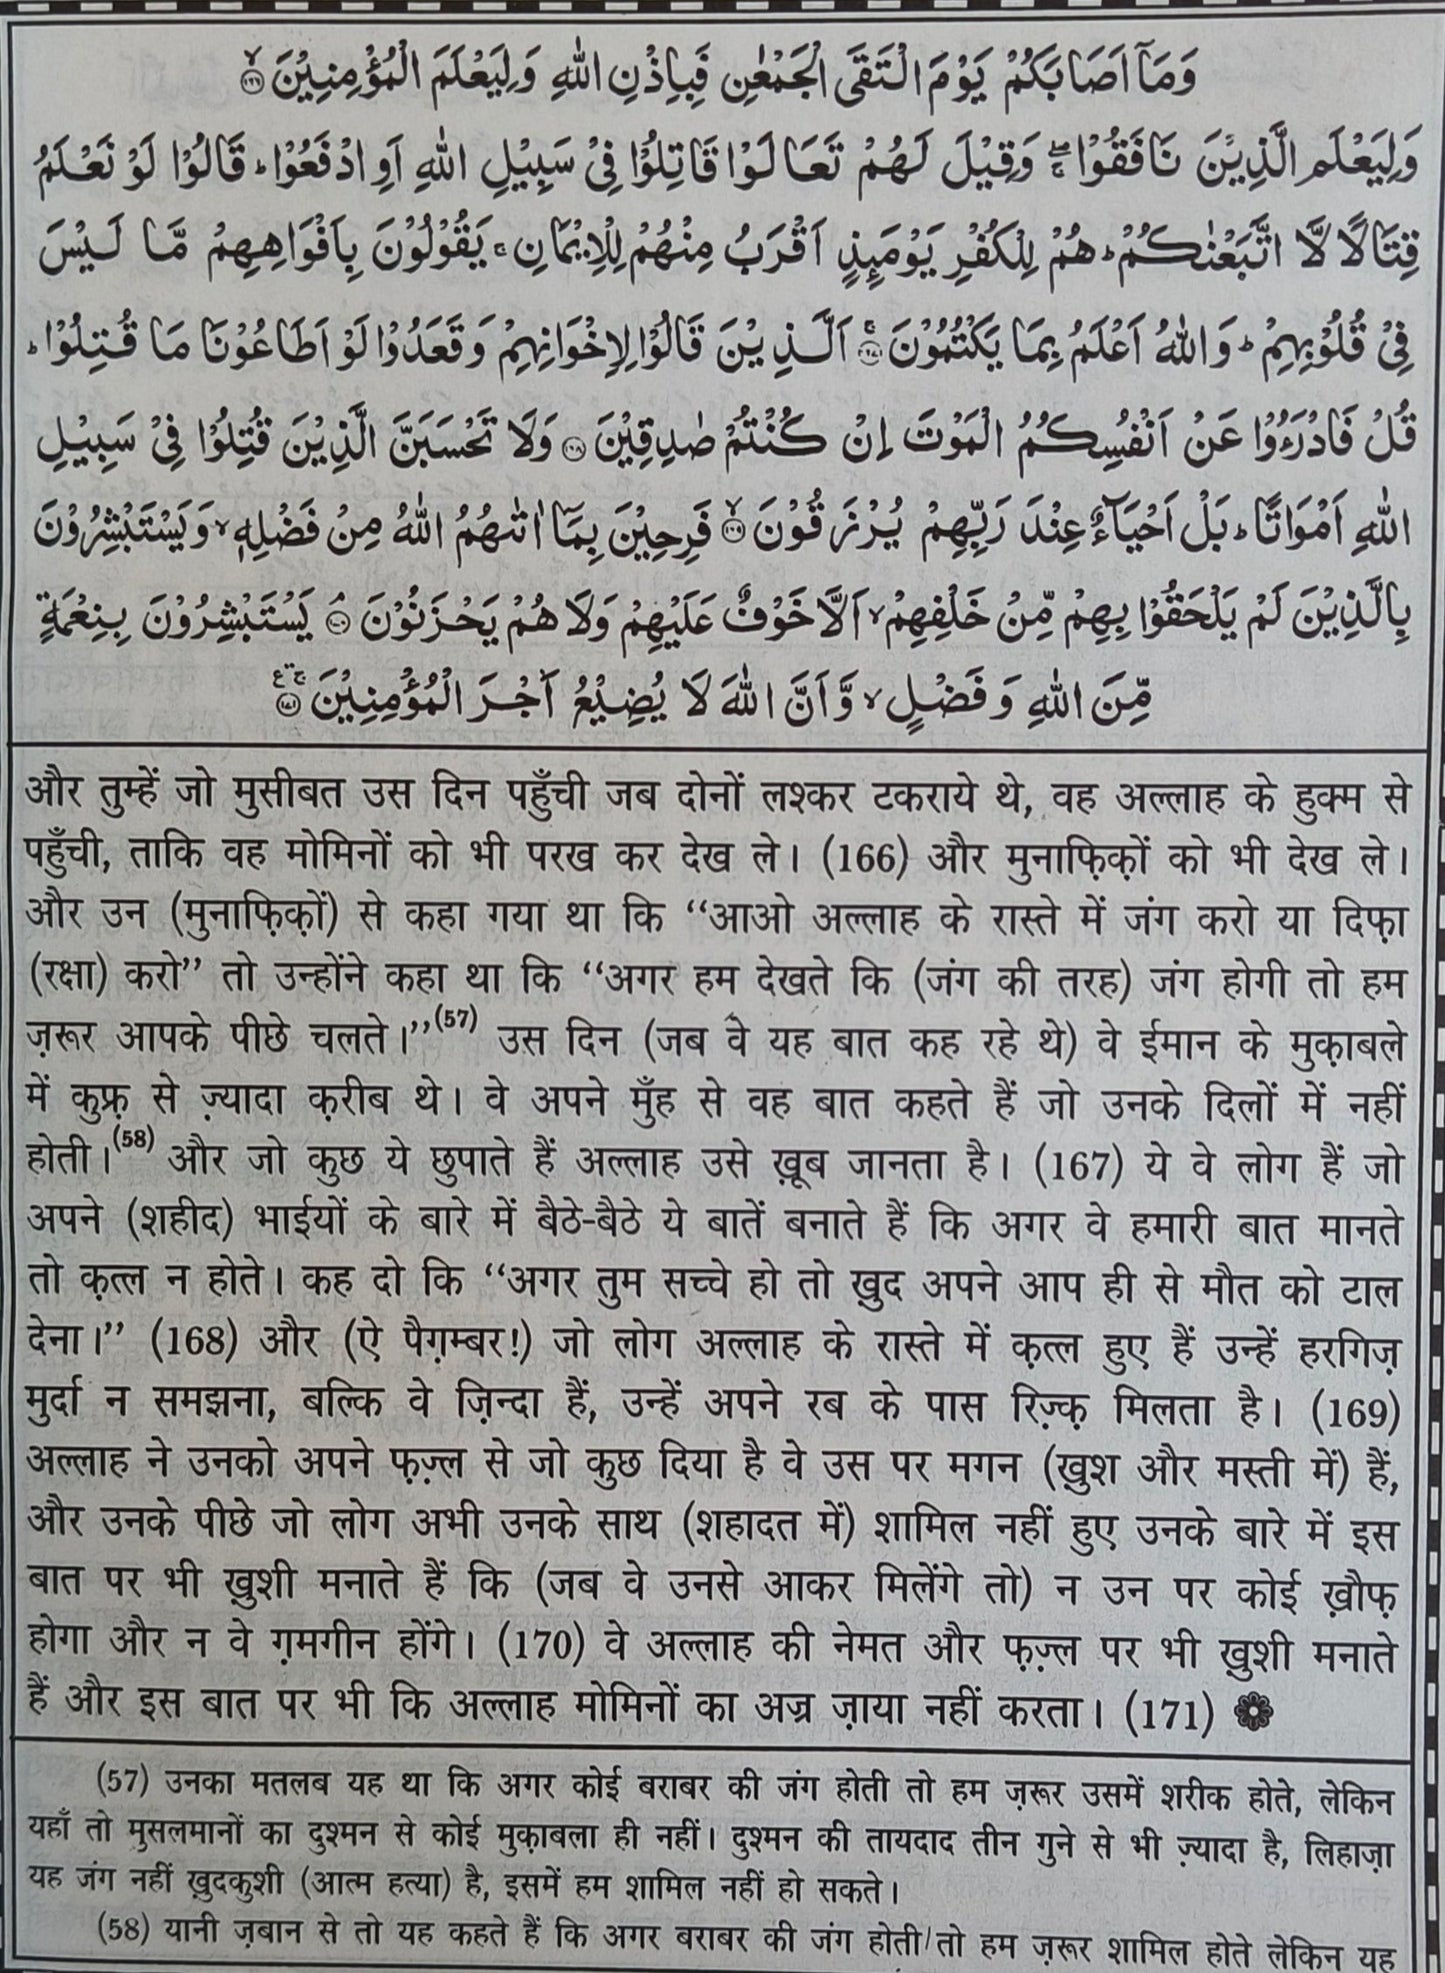 وَمَآ اَصَابَكُمْ يَوْمَ الْتَقَى الْجَمْعٰنِ فَبِاِذْنِ اللّٰهِ وَلِيَعْلَمَ الْمُؤْمِنِيْنَ ۙ﴿۱۶۶﴾
وَلِيَعْلَمَ الَّذِيْنَ نَافَقُوْا ۖۚ وَقِيْلَ لَهُمْ تَعَالَوْا قَاتِلُوْا فِيْ سَبِيْلِ اللّٰهِ اَوِ ادْفَعُوْا ؕ قَالُوْا لَوْ نَعْلَمُ
قِتَالًا لَّا اتَّبَعْنٰكُمْ ؕ هُمْ لِلْكُفْرِ يَوْمَىِٕذٍ اَقْرَبُ مِنْهُمْ لِلْاِيْمَانِ ۚ يَقُوْلُوْنَ بِاَفْوَاهِهِمْ مَّا لَيْسَ
فِيْ قُلُوْبِهِمْ ؕ وَاللّٰهُ اَعْلَمُ بِمَا يَكْتُمُوْنَ ۚ﴿۱۶۷﴾ اَلَّذِيْنَ قَالُوْا لِاِخْوَانِهِمْ وَقَعَدُوْا لَوْ اَطَاعُوْنَا مَا قُتِلُوْا ؕ
قُلْ فَادْرَءُوْا عَنْ اَنْفُسِكُمُ الْمَوْتَ اِنْ كُنْتُمْ صٰدِقِيْنَ ﴿۱۶۸﴾ وَلَا تَحْسَبَنَّ الَّذِيْنَ قُتِلُوْا فِيْ سَبِيْلِ
اللّٰهِ اَمْوَاتًا ؕ بَلْ اَحْيَآءٌ عِنْدَ رَبِّهِمْ يُرْزَقُوْنَ ۙ﴿۱۶۹﴾ فَرِحِيْنَ بِمَآ اٰتٰىهُمُ اللّٰهُ مِنْ فَضْلِهٖ ۙ وَيَسْتَبْشِرُوْنَ
بِالَّذِيْنَ لَمْ يَلْحَقُوْا بِهِمْ مِّنْ خَلْفِهِمْ ۙ اَلَّا خَوْفٌ عَلَيْهِمْ وَلَا هُمْ يَحْزَنُوْنَ ۘ﴿۱۷۰﴾ يَسْتَبْشِرُوْنَ بِنِعْمَةٍ
مِّنَ اللّٰهِ وَفَضْلٍ ۙ وَّاَنَّ اللّٰهَ لَا يُضِيْعُ اَجْرَ الْمُؤْمِنِيْنَ ﴿۱۷۱﴾
और तुम्हें जो मुसीबत उस दिन पहुँची जब दोनों लश्कर टकराये थे, वह अल्लाह के हुक्म से
पहुँची, ताकि वह मोमिनों को भी परख कर देख ले। (166) और मुनाफ़िक़ों को भी देख ले।
और उन (मुनाफ़िक़ों) से कहा गया था कि ‘‘आओ अल्लाह के रास्ते में जंग करो या दिफ़ा
(रक्षा) करो’’ तो उन्होंने कहा था कि ‘‘अगर हम देखते कि (जंग की तरह) जंग होगी तो हम
ज़रूर आपके पीछे चलते।’’(57) उस दिन (जब वे यह बात कह रहे थे) वे ईमान के मुक़ाबले
में कुफ़्र से ज़्यादा क़रीब थे। वे अपने मुँह से वह बात कहते हैं जो उनके दिलों में नहीं
होती।(58) और जो कुछ ये छुपाते हैं अल्लाह उसे ख़ूब जानता है। (167) ये वे लोग हैं जो
अपने (शहीद) भाईयों के बारे में बैठे-बैठे ये बातें बनाते हैं कि अगर वे हमारी बात मानते
तो क़त्ल न होते। कह दो कि ‘‘अगर तुम सच्चे हो तो ख़ुद अपने आप ही से मौत को टाल
देना।’’ (168) और (ऐ पैग़म्बर!) जो लोग अल्लाह के रास्ते में क़त्ल हुए हैं उन्हें हरगिज़
मुर्दा न समझना, बल्कि वे ज़िन्दा हैं, उन्हें अपने रब के पास रिज़्क़ मिलता है। (169)
अल्लाह ने उनको अपने फ़ज़्ल से जो कुछ दिया है वे उस पर मगन (ख़ुश और मस्ती में) हैं,
और उनके पीछे जो लोग अभी उनके साथ (शहादत में) शामिल नहीं हुए उनके बारे में इस
बात पर भी ख़ुशी मनाते हैं कि (जब वे उनसे आकर मिलेंगे तो) न उन पर कोई ख़ौफ़
होगा और न वे ग़मगीन होंगे। (170) वे अल्लाह की नेमत और फ़ज़्ल पर भी ख़ुशी मनाते
हैं और इस बात पर भी कि अल्लाह मोमिनों का अज्र ज़ाया नहीं करता। (171)
(57) उनका मतलब यह था कि अगर कोई बराबर की जंग होती तो हम ज़रूर उसमें शरीक होते, लेकिन
यहाँ तो मुसलमानों का दुश्मन से कोई मुक़ाबला ही नहीं। दुश्मन की तायदाद तीन गुने से भी ज़्यादा है, लिहाज़ा
यह जंग नहीं ख़ुदकुशी (आत्म हत्या) है, इसमें हम शामिल नहीं हो सकते।
(58) यानी ज़बान से तो यह कहते हैं कि अगर बराबर की जंग होती तो हम ज़रूर शामिल होते लेकिन यह